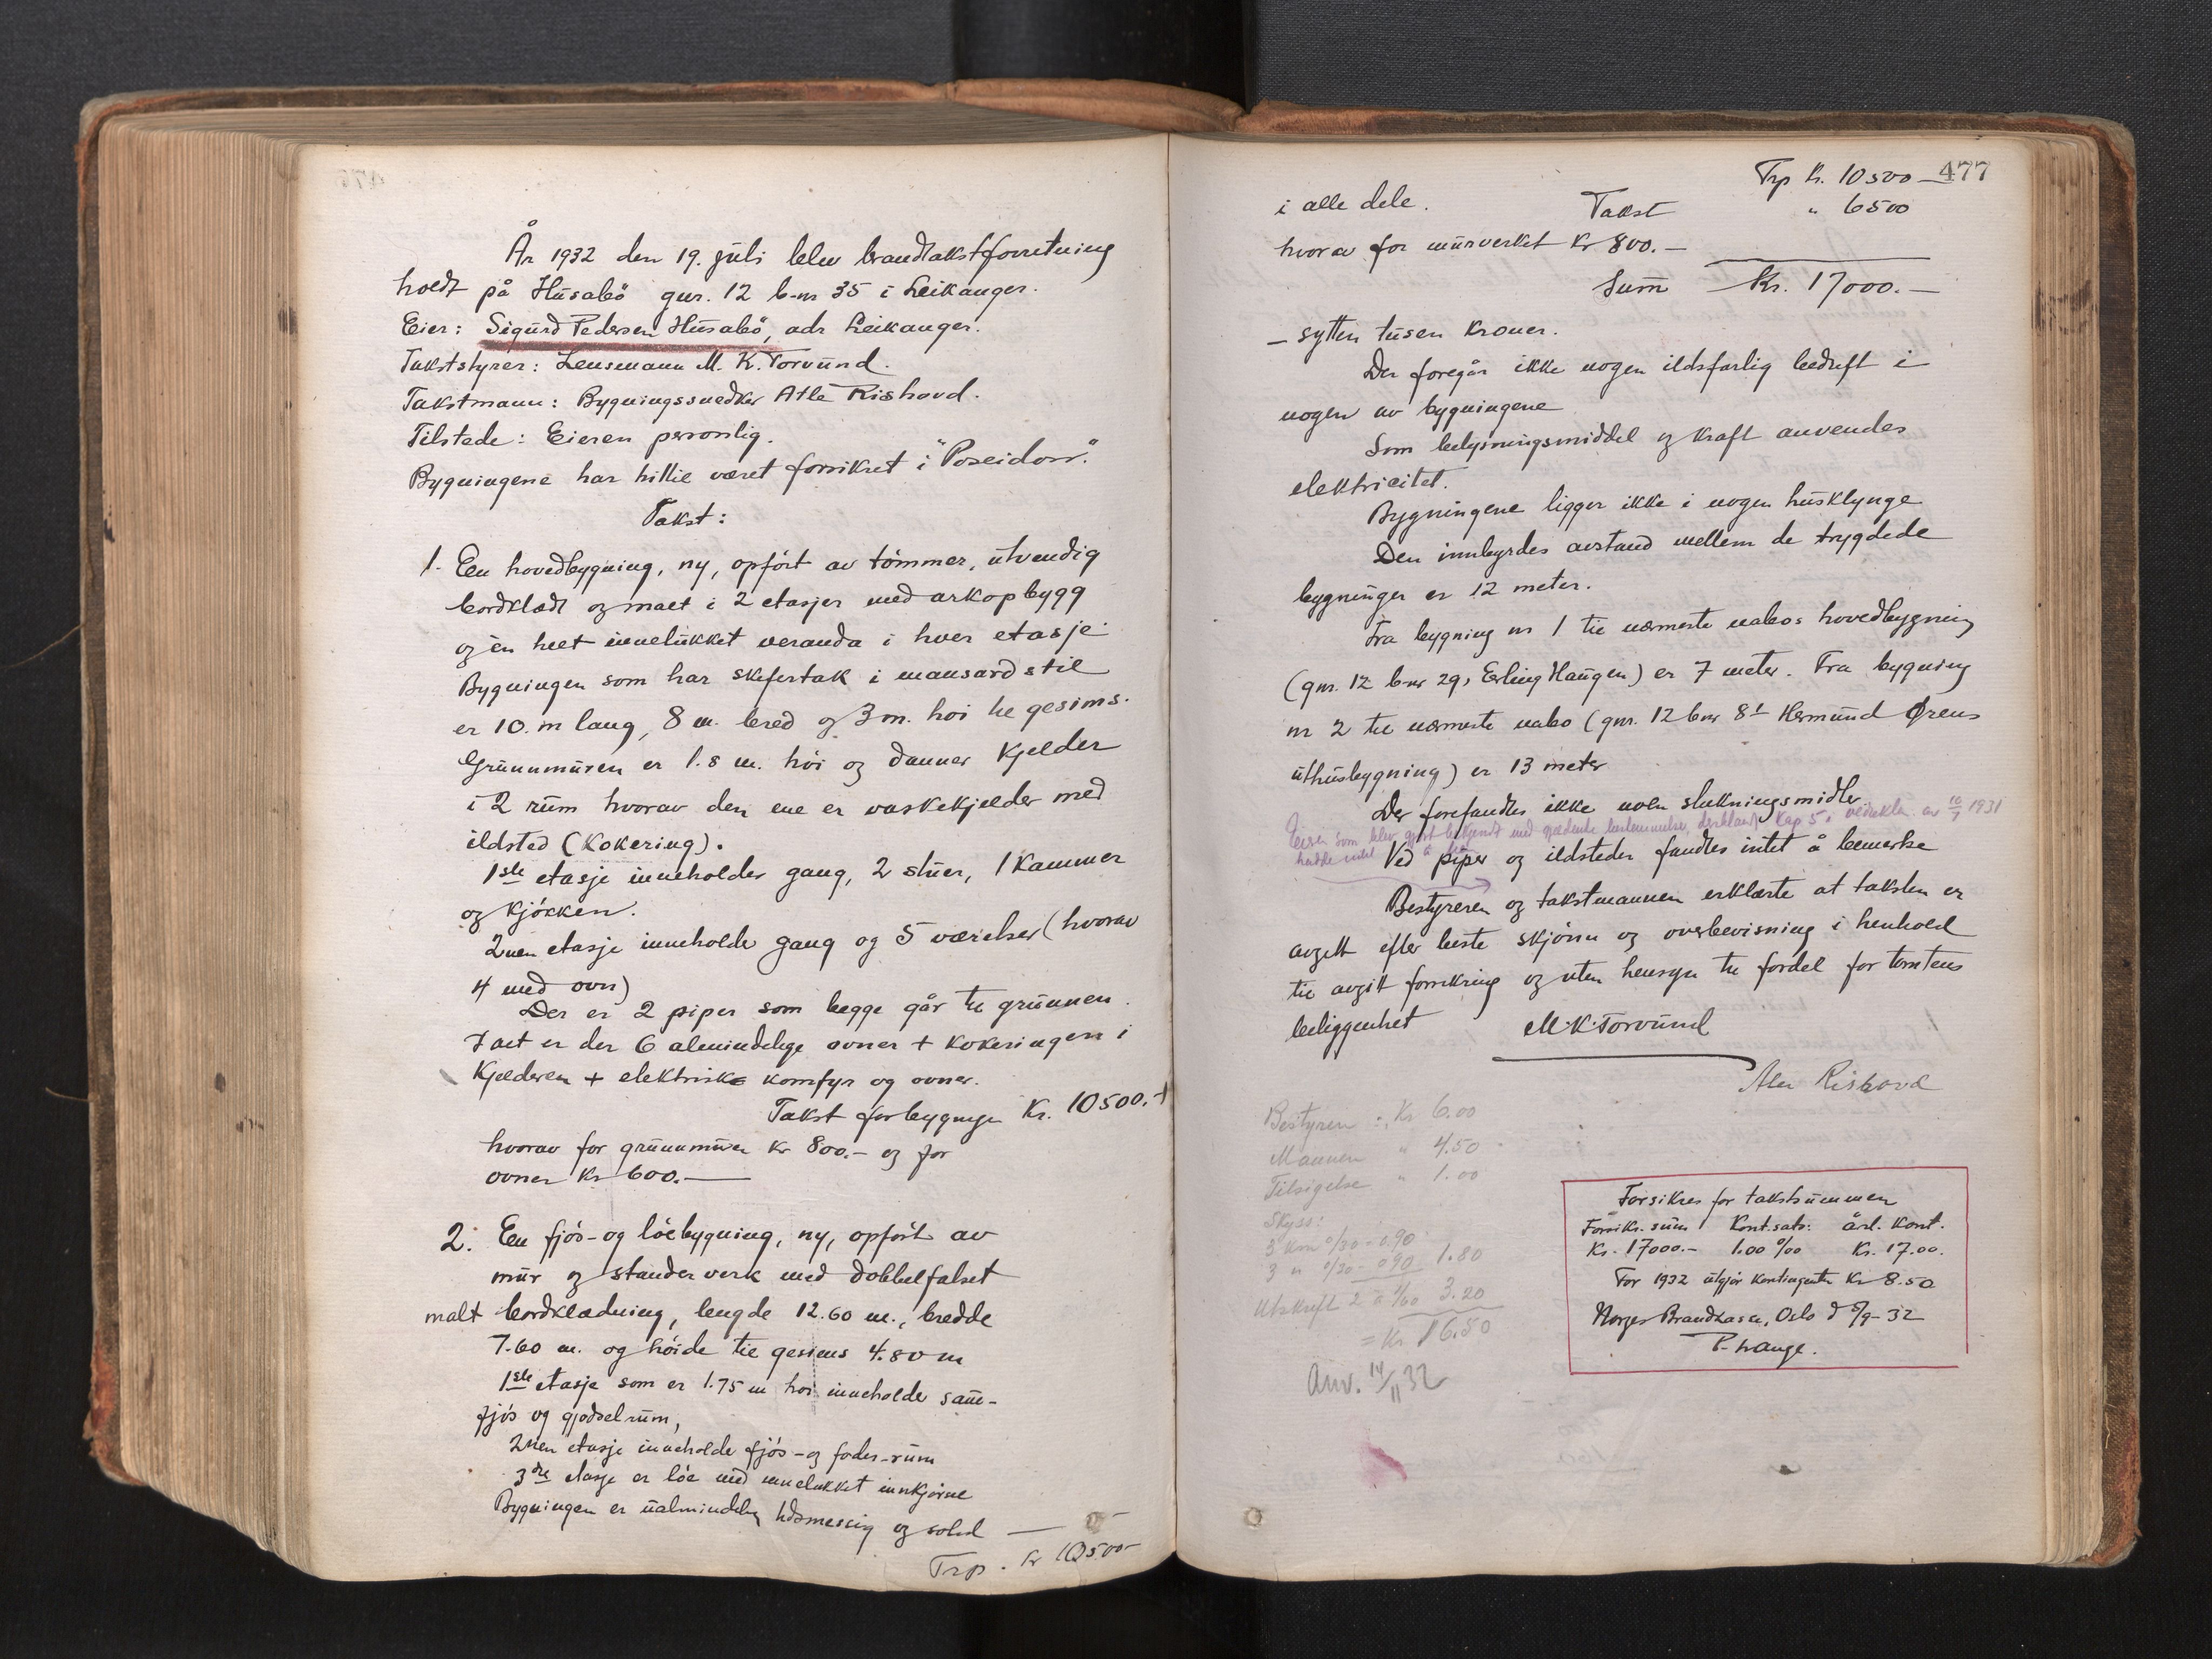 År 1932 den 19. juli blev brandtakstforretning
holdt på Husabö gnr. 12 b-nr 35 i Leikanger.
Eier: Sigurd Pedersen Husabö, adr Leikanger.
Takststyrer: Lensmann M. K. Torvund.
Takstmann: Bygningssnedker Atle Rishovd.
Tilstede: Eieren personlig.
Bygningene har hittil været forsikret i "Poseidon".
Takst:
1. En hovedbygning, ny, opfört av tömmer, utvendig
bordklædt og malt i 2 etasjer med arkopbygg
og én helt innelukket veranda i hver etasje.
Bygningen som har skifertak i mansardstil
er 10. m lang, 8 m. bred og 3 m. höi til gesims.
Grunnmuren er 1.8 m. höi og danner kjelder
i 2 rum hvorav den ene er vaskekjelder med
ildsted (kokering).
1ste etasje inneholder gang, 2 stuer, 1 kammer
og kjökken.
2nen etasje inneholder gang og 5 værelser (hvorav
4 med ovn)
Der er 2 piper som begge går til grunnen.
I alt er der 6 almindelige ovner + kokeringen i
kjelderen + elektrisk komfyr og ovner.
Takst for bygningen Kr. 10500.-
hvorav for grunnmuren kr 800.- og for
ovner kr 600.-
2. En fjös- og löebygning, ny, opfört av
mur og standerverk med dobbelfalset
malt bordklædning, lengde 12.60 m., bredde
7.60 m. og höide til gesims 4.80 m
1ste etasje som er 1.75 m höi inneholder saue-
fjös og gjödselrum,
2nen etasje inneholder fjös- og foder-rum
3dje etasje er löe med innelukket innkjörsel
Bygningen er ualmindelig tidsmessig og solid
Trp. kr 10500-
477
Trp kr. 10500 -
i alle dele. Takst " 6500
hvorav for murverket kr 800.-
Sum Kr. 17000.-
- sytten tusen kroner.
Der foregår ikke nogen ildsfarlig bedrift i
nogen av bygningene
Som belysningsmiddel og kraft anvendes
elektricitet.
Bygningene ligger ikke i nogen husklynge
Den innbyrdes avstand mellem de trygdede
bygninger er 12 meter.
Fra bygning nr 1 til nærmeste nabos hovedbygning
(gnr. 12 b-nr 29, Erling Haugen) er 7 meter. Fra bygning
nr 2 til nærmeste nabo (gnr. 12 bnr 81 Hermund Ørens
uthusbygning) er 13 meter
Der forefandtes ikke noen slukningsmidler.
Eieren som blev gjort bekjendt med gjeldende bestemmelser, Kap 5 i av 10/7 1931
hadde intet
Ved piper og ildsteder fandtes intet å bemerke
Bestyreren og takstmannen erklærte at taksten er
avgitt efter beste skjönn og overbevisning i henhold
til avgitt forsikring og uten hensyn til fordel for tomtens
beliggenhet M. K. Torvund
Atle Rishovd
Bestyren : Kr 6.00
Mannen " 4.50
Tilsigelse " 1.00
Skyss:
3 km 0/30 - 0.90
3 " 0/30 0 90 1.80
Utskrift 2 a 1/60 3.20
= Kr 16.50
Anv. 14/11 32
Forsikres for takstsummen
Forsikr. sum Kont.sats: årl. kont.
Kr. 17000.- 1.00 ‰ Kr. 17.00.
For 1932 utgjör kontingenten Kr 8.50
Norges Brandkasse, Oslo d 5/9-32
P. Lange.